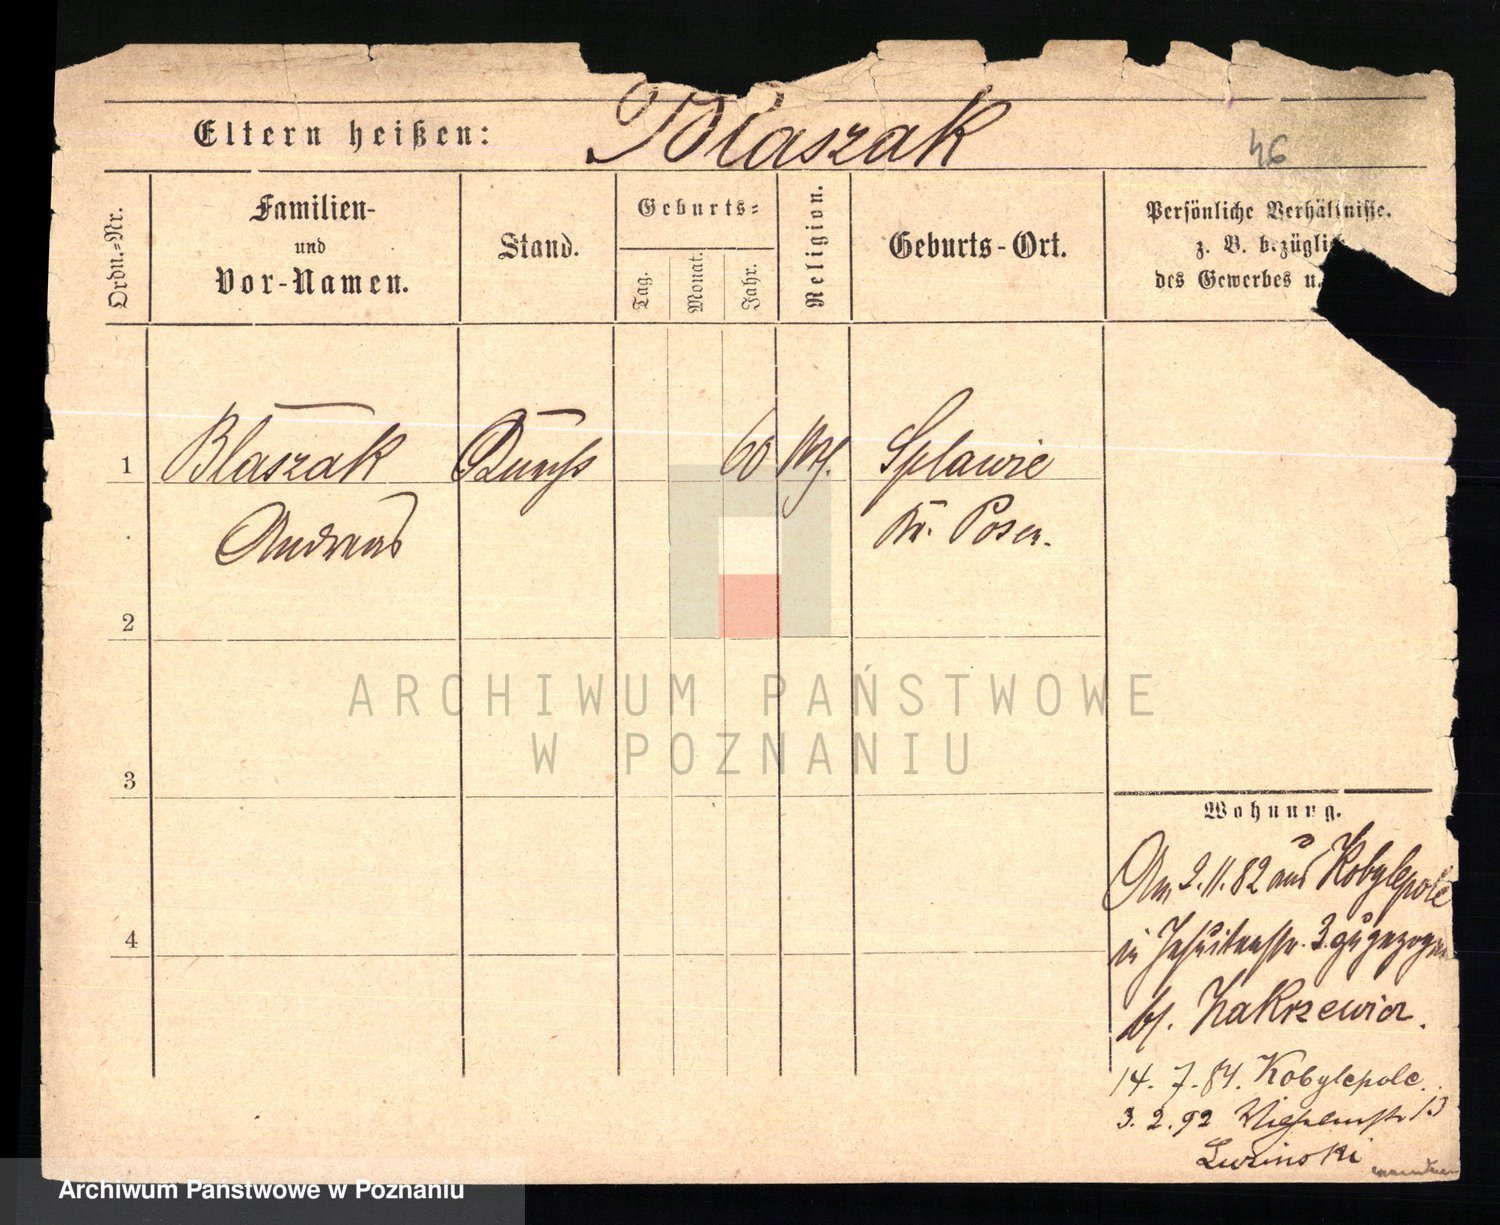 Eltern heißen: Błaszak
46
Ordn.-Nr.
Familien-
und
Vor-Namen.
Stand.
Geburts-
Tag.
Monat.
Jahr.
Religion.
Geburts-Ort.
Persönliche Verhältnisse.
z. B. bezüglich
des Gewerbes u.
1 Błaszak 60 Splawie
Andreas Kr. Posen.
2
3
4
Wohnung.
Am 2.11.82 aus Kobylepole
in Jesuitenstr. 3 zugezogen
bf. Zakrzewicz.
14. 7. 84. Kobylepole.
3. 2. 92 13
ARCHIWUM PAŃSTWOWE
W POZNANIU
Archiwum Państwowe w Poznaniu